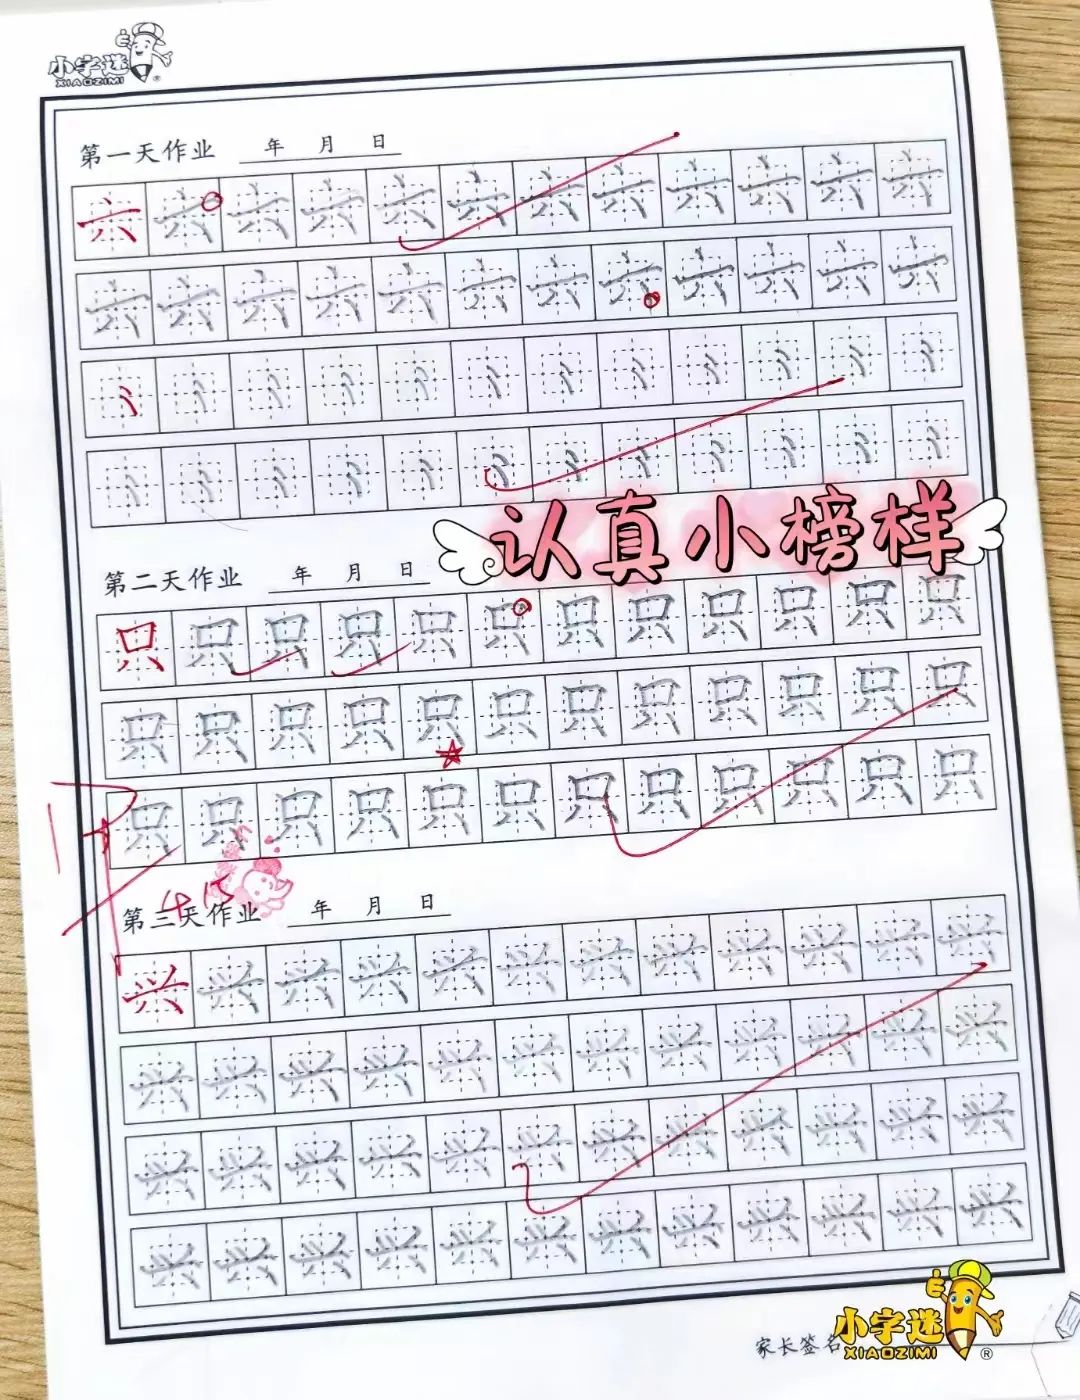 小字迷
XIAOZIMI
第一天作业 年 月 日
六 六 六 六 六 六 六 六 六 六 六 六
六 六 六 六 六 六 六 六 六 六 六 六
认真小榜样
第二天作业 年 月 日
只 只 只 只 只 只 只 只 只 只 只 只
只 只 只 只 只 只 只 只 只 只 只 只
只 只 只 只 只 只 只 只 只 只 只 只
4.15
第三天作业 年 月 日
兴 兴 兴 兴 兴 兴 兴 兴 兴 兴 兴 兴
兴 兴 兴 兴 兴 兴 兴 兴 兴 兴 兴 兴
兴 兴 兴 兴 兴 兴 兴 兴 兴 兴 兴 兴
兴 兴 兴 兴 兴 兴 兴 兴 兴 兴 兴 兴
家长签名
小字迷
XIAOZIMI®